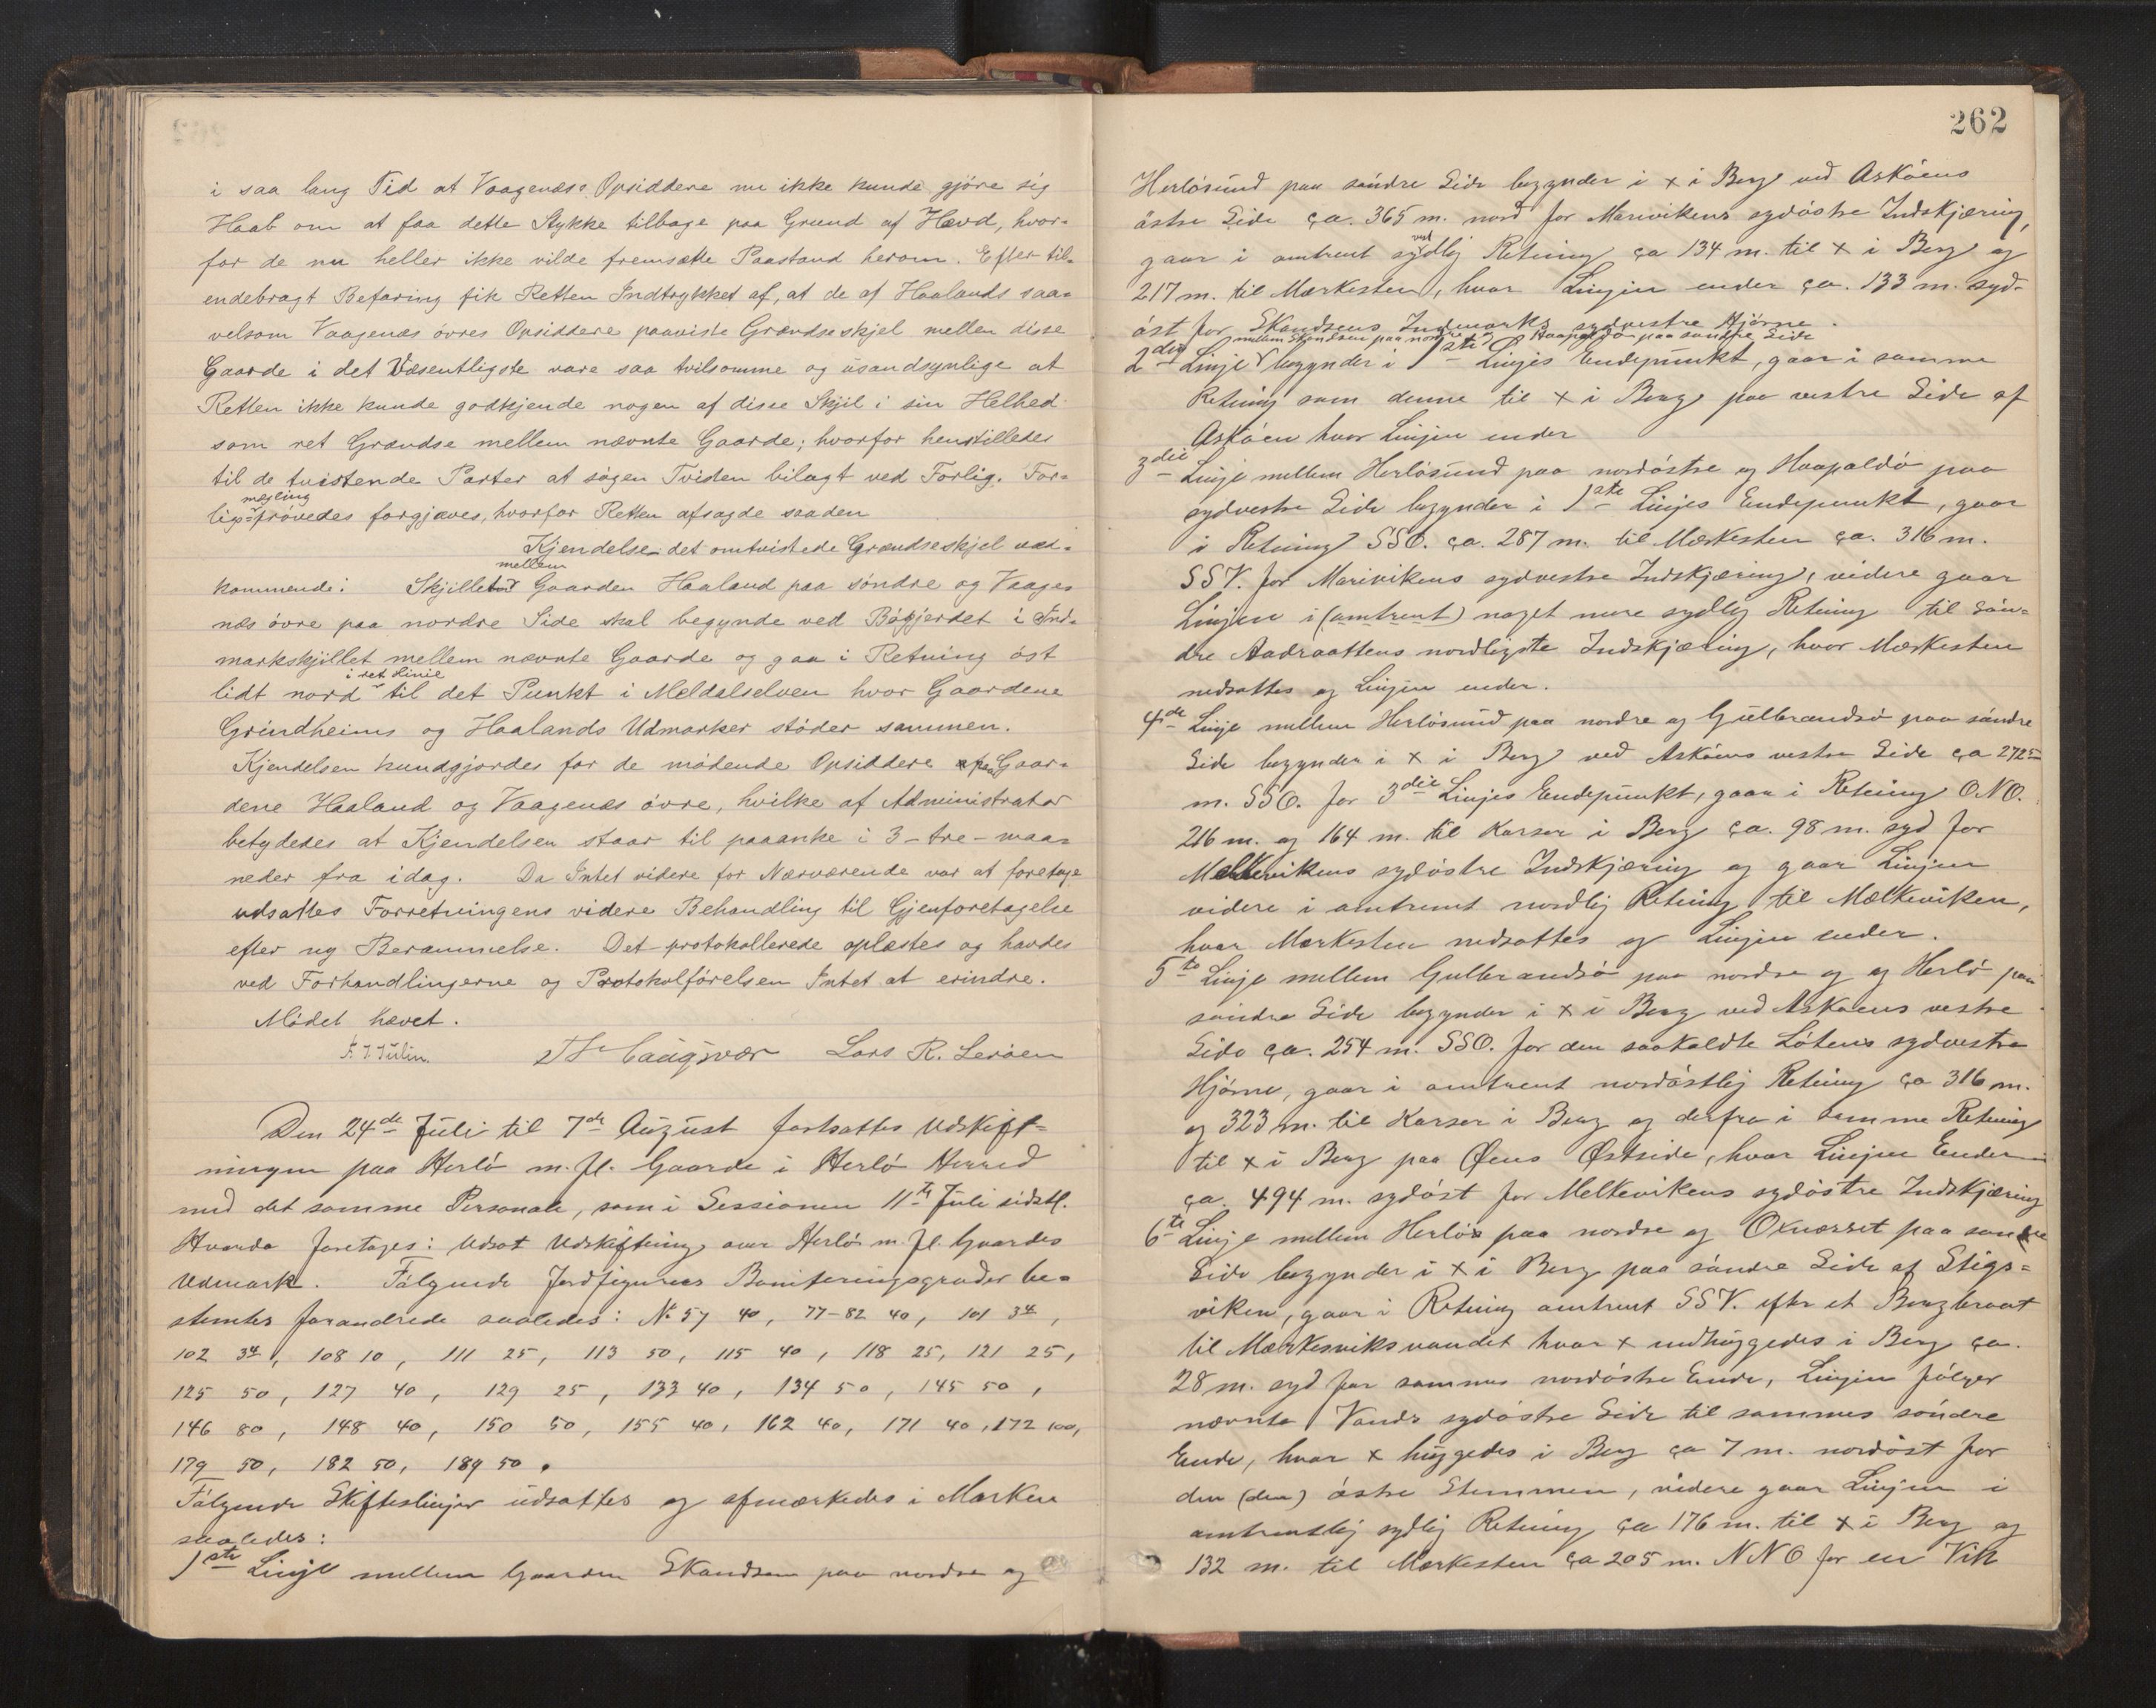 i saa lang Tid at Vaagenæs Opsiddere nu ikke kunde gjöre sig
Haab om at faa dette Stykke tilbage paa Grund af Hævd, hvor-
for de nu heller ikke vilde fremsætte Paastand herom. Efter til-
endebragt Befaring fik Retten Indtrykket af, at de af Haalands saa-
velsom Vaagenæs övres Opsiddere paaviste Grændseskjel mellem disse
Gaarde i det Væsentligste vare saa tvilsomme og usandsynlige at
Retten ikke kunde godkjende nogen af disse Skjil i sin Helhed
som ret Grændse mellem nævnte Gaarde; hvorfor henstilledes
til de tvistende Parter at sögen Tvisten bilagt ved Forlig. For-
mægling
ligs prövedes forgjæves, hvorfor Retten afsagde saaden
Kjendelse det omtvistede Grændseskjel ved-
mellem
kommende: Skjillet Gaarden Haaland paa söndre og Vaage-
næs övre paa nordre Side skal begynde ved Bögjerdet i Ind-
markskjillet mellem nævnte Gaarde og gaa i Retning öst
i ret Linie
lidt nord til det Punkt i Meldalselven hvor Gaardene
Grindheims og Haalands Udmarker stöder sammen.
Kjendelsen kundgjordes for de mödende Opsiddere paa Gaar-
dene Haaland og Vaagenæs övre, hvilke af Administrator
betydedes at Kjendelsen staar til paaanke i 3 - tre - maa-
neder fra idag. Da Intet videre for Nærværende var at foretage
udsattes Forretningens videre Behandling til Gjenforetagelse
efter ny Berammelse. Det protokollerede oplæstes og havdes
ved Forhandlingerne og Protokolförelsen Intet at erindre.
Mödet hævet.
Lars R. Leröen
Den 24de Juli til 7de August fortsattes Udskift-
ningen paa Herlö m. fl. Gaarde i Herlö Herred
med det samme Personale, som i Sessionen 11te Juli sidstl.
Hvorda foretages: Udsat Udskiftning over Herlö m. fl. Gaardes
Udmark. Fölgende Jordfigurers Boniteringsgrader be-
stemtes forandrede saaledes: No 57 40, 77-82 40, 101 34,
102 34, 108 10, 111 25, 113 50, 115 40, 118 25, 121 25,
125 50, 127 40, 129 25, 133 40, 134 50, 145 50,
146 80, 148 40, 150 50, 155 40, 162 40, 171 40, 172 100,
179 50, 182 50, 189 50.
Fölgende Skifteslinjer udsattes og afmærkedes i Marken
saaledes:
1ste Linje mellem Gaarden Skandsen paa nordre og
262
Herlösund paa söndre Side begynder i x i Berg ved Asköens
östre Side ca. 365 m. nord for Marivikens sydöstre Indskjæring,
vest
gaar i omtrent sydlig Retning ca 134 m. til x i Berg og
217 m. til Mærkesten, hvor Linjen ender ca. 133 m. syd-
öst for Skandsens Indmarks sydvestre Hjörne.
mellem Skandsen paa nordre og Haapoldö paa söndre Side
2den Linje begynder i 1ste Linjes Endepunkt, gaar i samme
Retning som denne til x i Berg paa vestre Side af
Asköen hvor Linjen ender
3die Linje mellem Herlösund paa nordöstre og Haapoldö paa
sydvestre Side begynder i 1ste Linjes Endepunkt, gaar
i Retning SSO. ca. 287 m. til Mærkesten ca. 316 m.
SSV. for Marivikens sydvestre Indskjæring, videre gaar
Linjen i (omtrent) noget mere sydlig Retning til Sön-
dre Aadraattens nordligste Indskjæring, hvor Mærkesten
nedsattes og Linjen ender.
4de Linje mellem Herlösund paa nordre og Gulbrandsö paa söndre
Side begynder i x i Berg ved Asköens vestre Side ca 272
m. SSO. for 3die Linjes Endepunkt, gaar i Retning O.N.O.
216 m. og 164 m. til Korser i Berg ca. 98 m. syd for
Melkevikens sydöstre Indskjæring og gaar Linjen
videre i omtrent nordlig Retning til Mælkeviken,
hvor Mærkesten nedsattes og Linjen ender.
5te Linje mellem Gulbrandsö paa nordre og og Herlö paa
söndre Side begynder i x i Berg ved Asköens vestre
Side ca. 254 m. SSO. for den saakaldte Lötens sydvestre
Hjörne, gaar i omtrent nordöstlig Retning ca 316 m.
og 323 m. til Korser i Berg og derfra i samme Retning
til x i Berg paa Øens Østside, hvor Linjen Ender
ca. 494 m. sydöst for Melkevikens sydöstre Indskjæring
6te Linje mellem Herlö paa nordre og Oxnæsset paa söndre
Side begynder i x i Berg paa söndre Side af Stigs-
viken, gaar i Retning omtrent SSV. efter et Bergbrat
til Mærkesviksvandet hvor x indhuggedes i Berg ca.
28 m. syd for sammes nordöstre Ende, Linjen fölger
nævnte Vands sydöstre Side til sammes söndre
Ende, hvor x huggedes i Berg ca 7 m. nordöst for
den (den) östre Stemmen, videre gaar Linjen i
omtrentlig sydlig Retning ca 176 m. til x i Berg og
132 m. til Mærkesten ca 205 m. NNO for en Vik